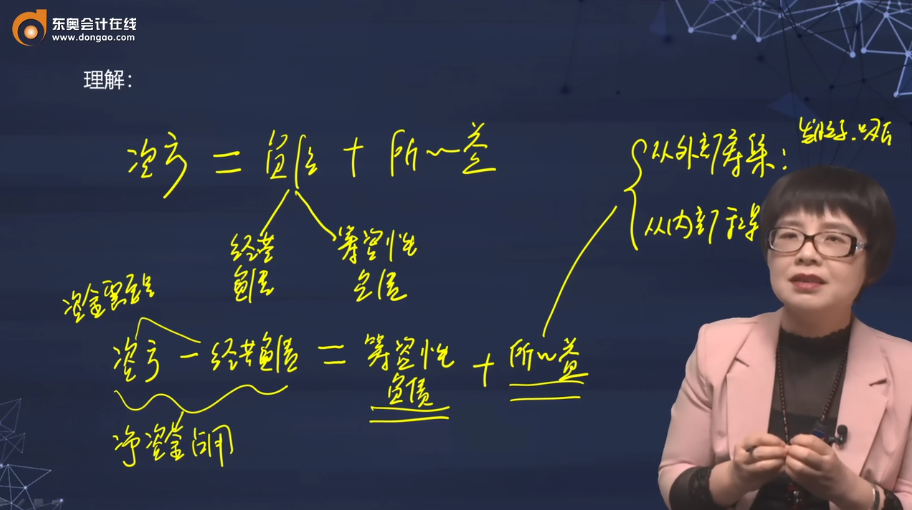 东奥会计在线
www.dongao.com
理解：
资产 = 负债 + 所有者权益
从外部筹集：
经营
负债
筹资性
负债
从内部积累
资金需要量
资产 - 经营负债 = 筹资性
负债
+ 所有者权益
净资金占用